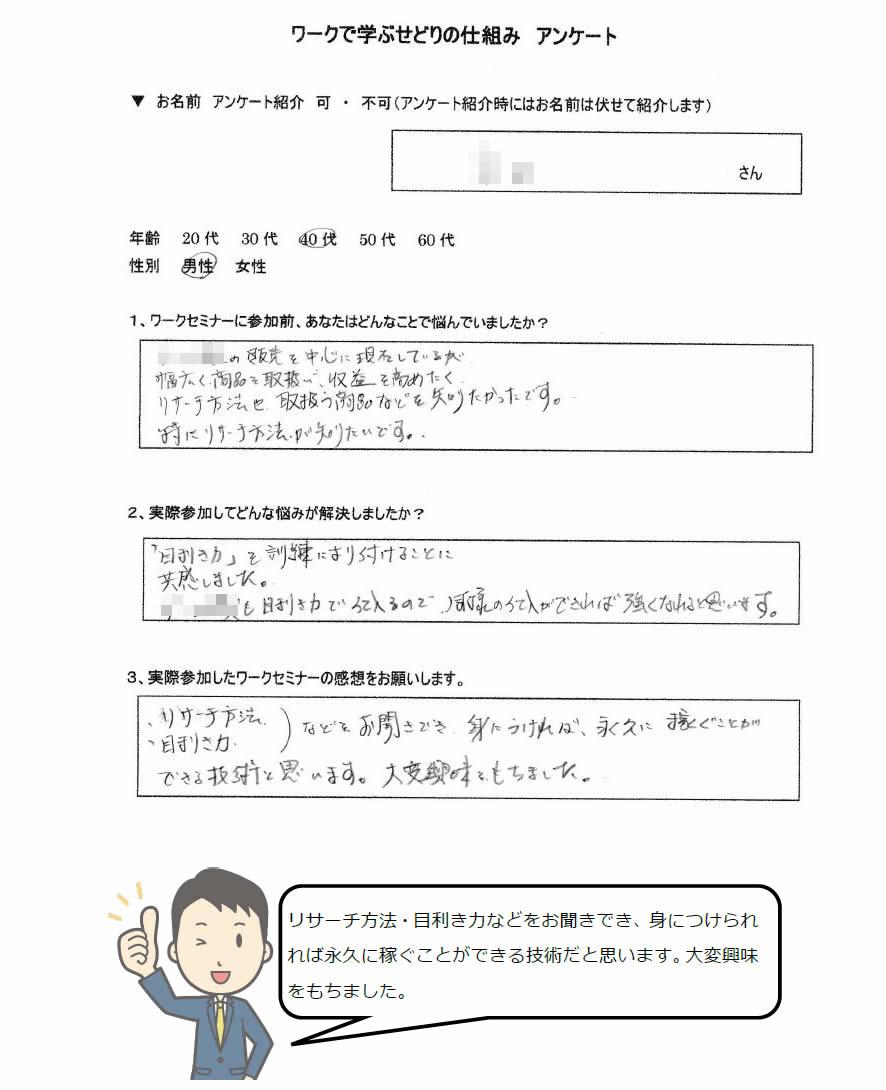 ワークで学ぶせどりの仕組み アンケート
▼ お名前 アンケート紹介 可 ・ 不可(アンケート紹介時にはお名前は伏せて紹介します)
さん
年齢 20代 30代 40代 50代 60代
性別 男性 女性
1、ワークセミナーに参加前、あなたはどんなことで悩んでいましたか?
の販売を中心に現在しているが
幅広く商品を取扱い、収益を高めたく
リサーチ方法や取扱う商品などを知りたかったです。
特にリサーチ方法が知りたいです。
2、実際参加してどんな悩みが解決しましたか?
「目利き力」を訓練により付けることに
共感しました。
も目利き力で仕入るので、同様の仕入ができれば強くなれると思います。
3、実際参加したワークセミナーの感想をお願いします。
、リサーチ方法
、目利き力
)などをお聞きでき、身につければ、永久に稼ぐことが
できる技術と思います。大変興味をもちました。
リサーチ方法・目利き力などをお聞きでき、身につけられ
れば永久に稼ぐことができる技術だと思います。大変興味
をもちました。